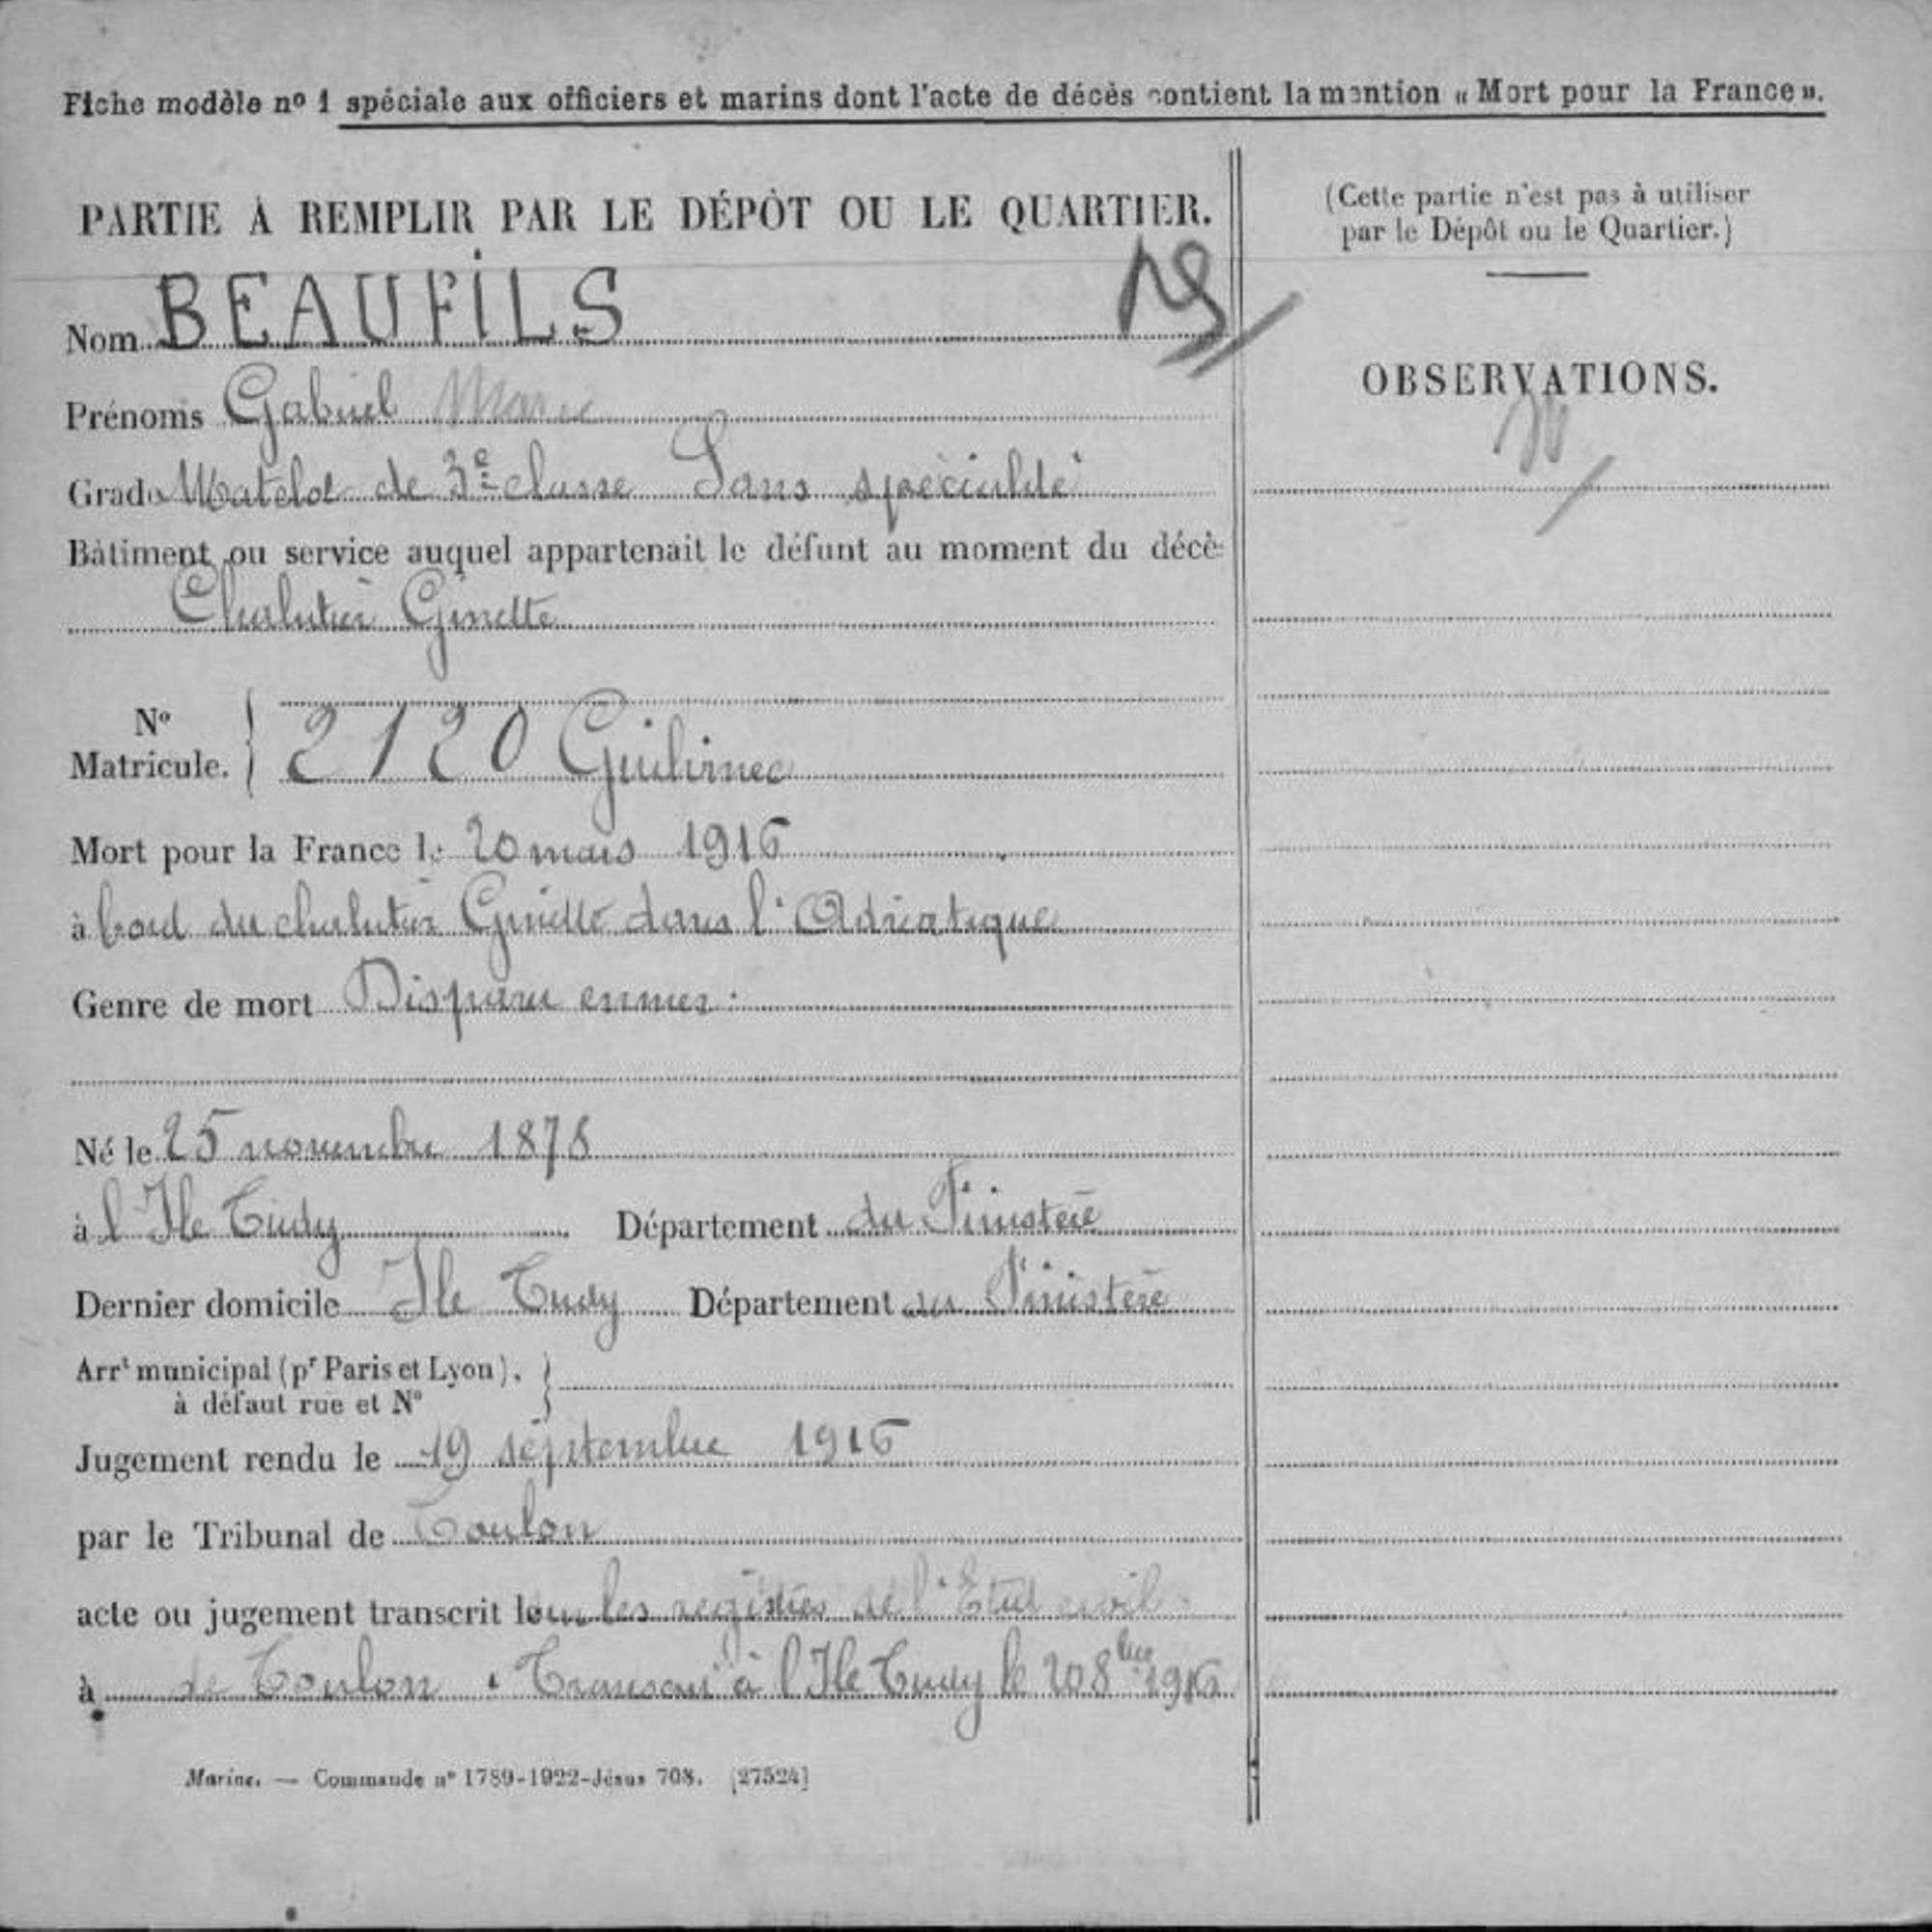 Fiche modèle nº 1 spéciale aux officiers et marins dont l'acte de décès contient la mention « Mort pour la France ».
PARTIE À REMPLIR PAR LE DÉPÔT OU LE QUARTIER.
Nom BEAUFILS
Prénoms Gabriel Marie
Grade Matelot de 3e classe Sans spécialité
Bâtiment ou service auquel appartenait le défunt au moment du décè
Chalutier Ginette
Nº Matricule. 2120 Guilvinec
Mort pour la France le 20 mars 1916
à bord du chalutier Ginette dans l'Adriatique
Genre de mort Disparu en mer
Né le 25 novembre 1878
à l'Ile Tudy Département du Finistère
Dernier domicile Ile Tudy Département du Finistère
Arrt municipal (pr Paris et Lyon),
à défaut rue et Nº
Jugement rendu le 19 septembre 1916
par le Tribunal de Toulon
acte ou jugement transcrit sur les registres de l'Etat civil
à de Toulon. Transcrit à l'Ile Tudy le 20 8bre 1916
Marine. — Commande nº 1789-1922-Jésus 708. [27524]
(Cette partie n'est pas à utiliser
par le Dépôt ou le Quartier.)
OBSERVATIONS.